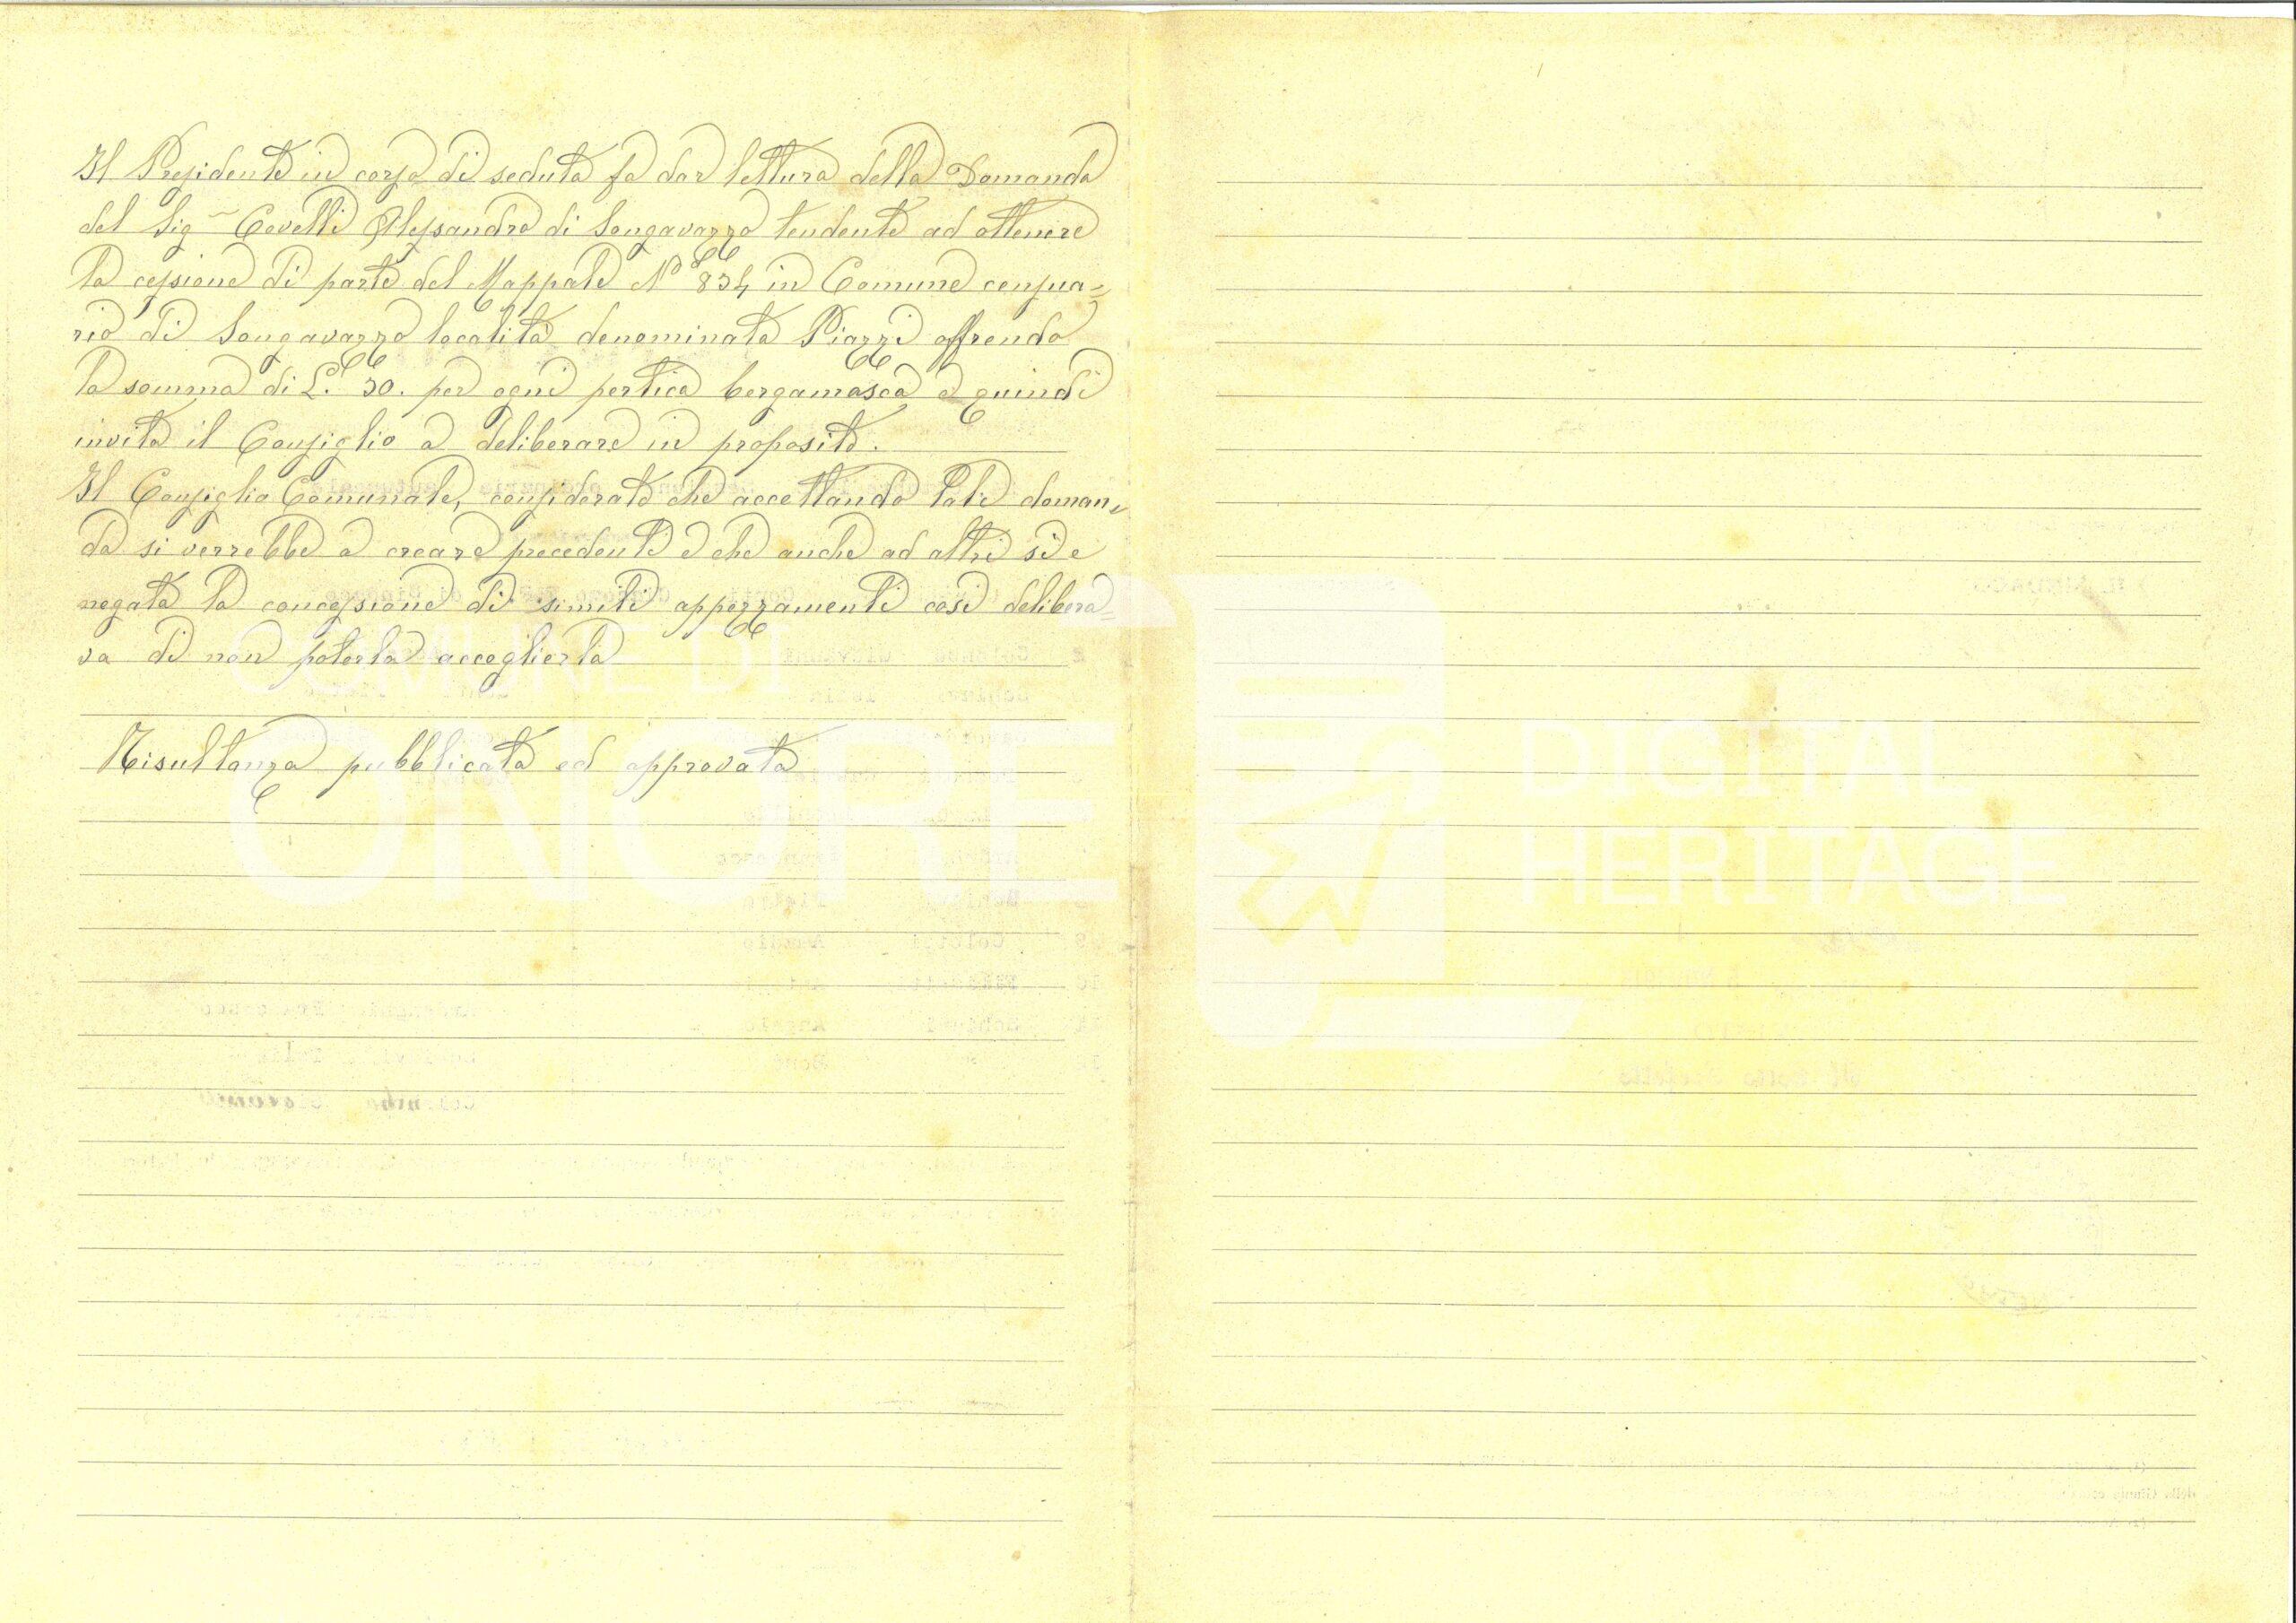 Il Presidente in corso di seduta fa dar lettura della Domanda
del Sig Covelli Alessandro di Songavazzo tendente ad ottenere
la cessione di parte del Mappale N° 834 in Comune censua=
rio di Songavazzo località denominata Piazzi offrendo
la somma di L. 30. per ogni pertica bergamasca e quindi
invita il Consiglio a deliberare in proposito.
Il Consiglio Comunale, considerato che accettando tale doman=
da si verrebbe a creare precedenti e che anche ad altri si e
negata la concessione di simili appezzamenti così delibera=
va di non poterla accoglierla
Risultanza pubblicata ed approvata
COMUNE DI
ONORE
DIGITAL
HERITAGE